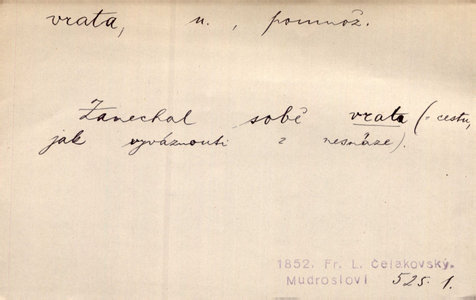 vrata, n., pomnož.
Zanechal sobě vrata (= cestu,
jak vyváznouti z nesnáze).
1852. Fr. L. Čelakovský.
Mudrosloví 525. 1.